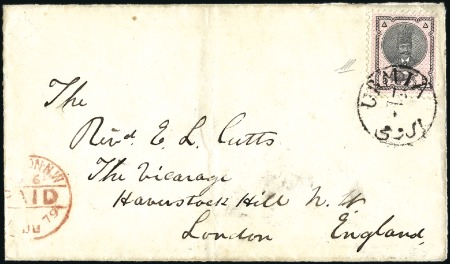 The
Revd. E. L. Cutts
The Vicarage
Haverstock Hill N. W
London England
URMIA
PAID